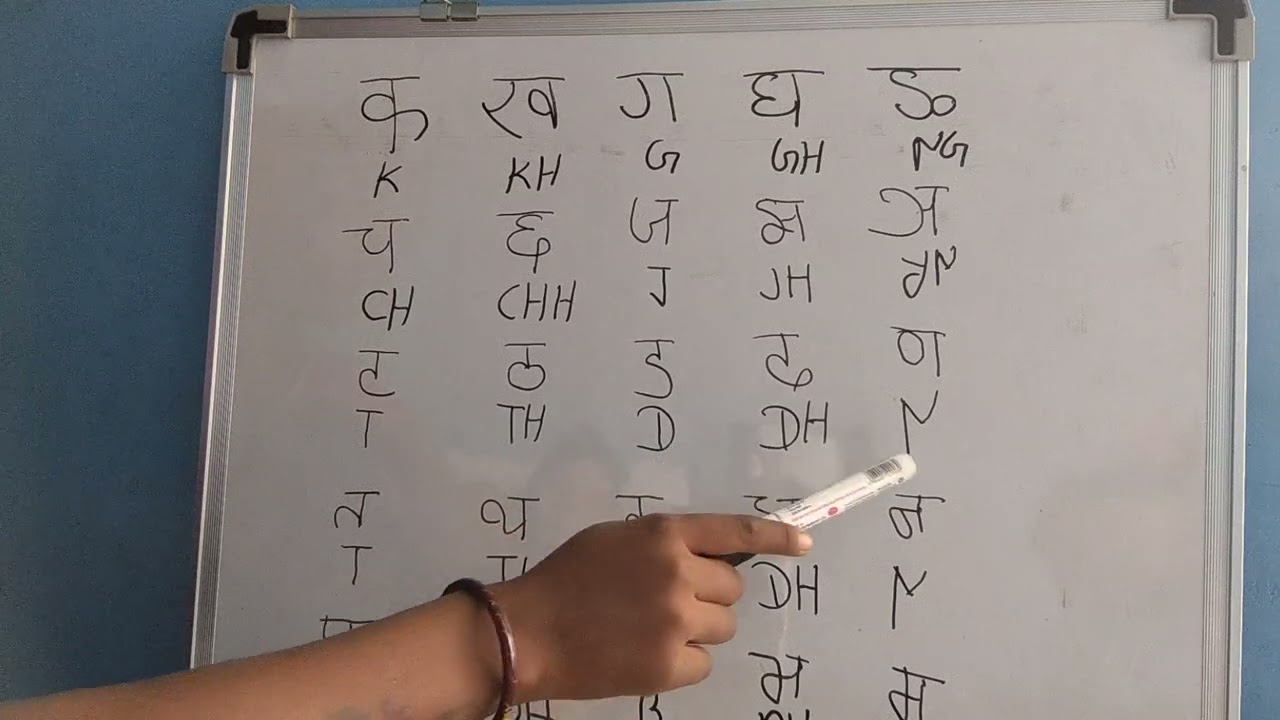 क ख ग घ ङ
K KH G GH NG
च छ ज झ ञ
CH CHH J JH YN
ट ठ ड ढ ण
T TH D DH N
त थ ध न
T TH DH N
भ म